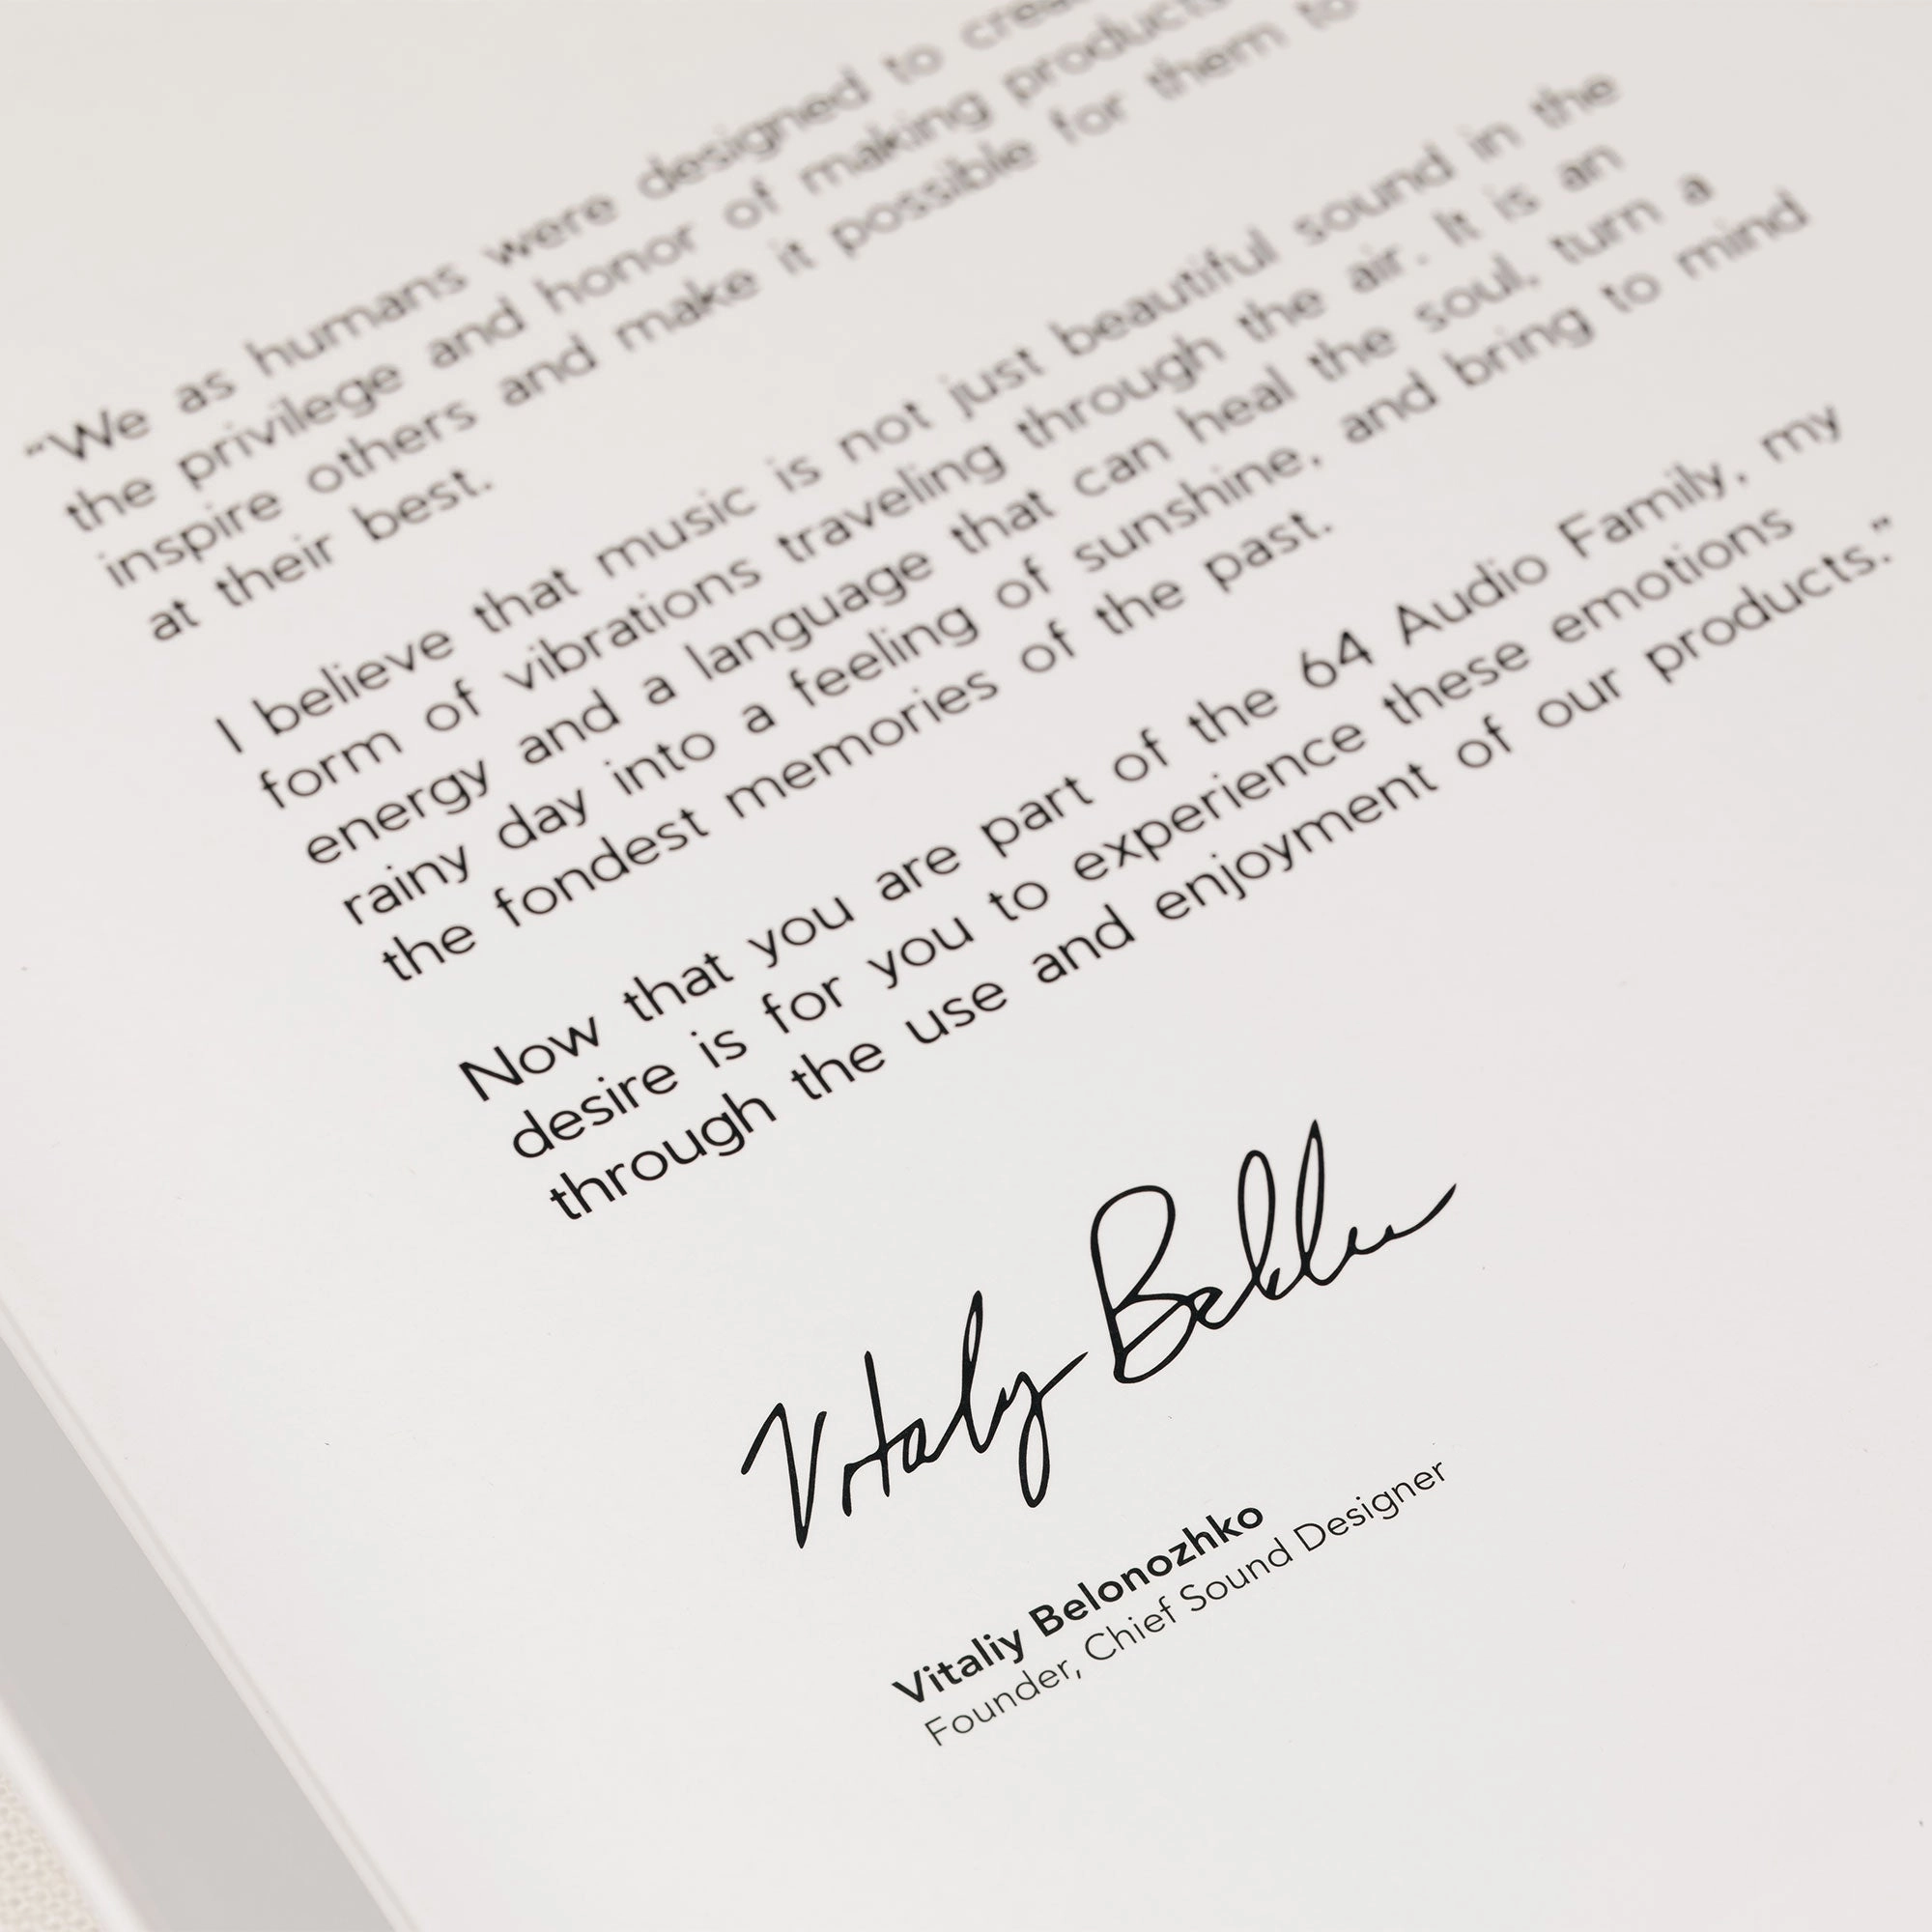 “We as humans were designed to
the privilege and honor of making products
inspire others and make it possible for them to
at their best.
I believe that music is not just beautiful sound in the
form of vibrations traveling through the air. It is an
energy and a language that can heal the soul, turn a
rainy day into a feeling of sunshine, and bring to mind
the fondest memories of the past.
Now that you are part of the 64 Audio Family, my
desire is for you to experience these emotions
through the use and enjoyment of our products.”
Vitaliy Belonozhko
Founder, Chief Sound Designer